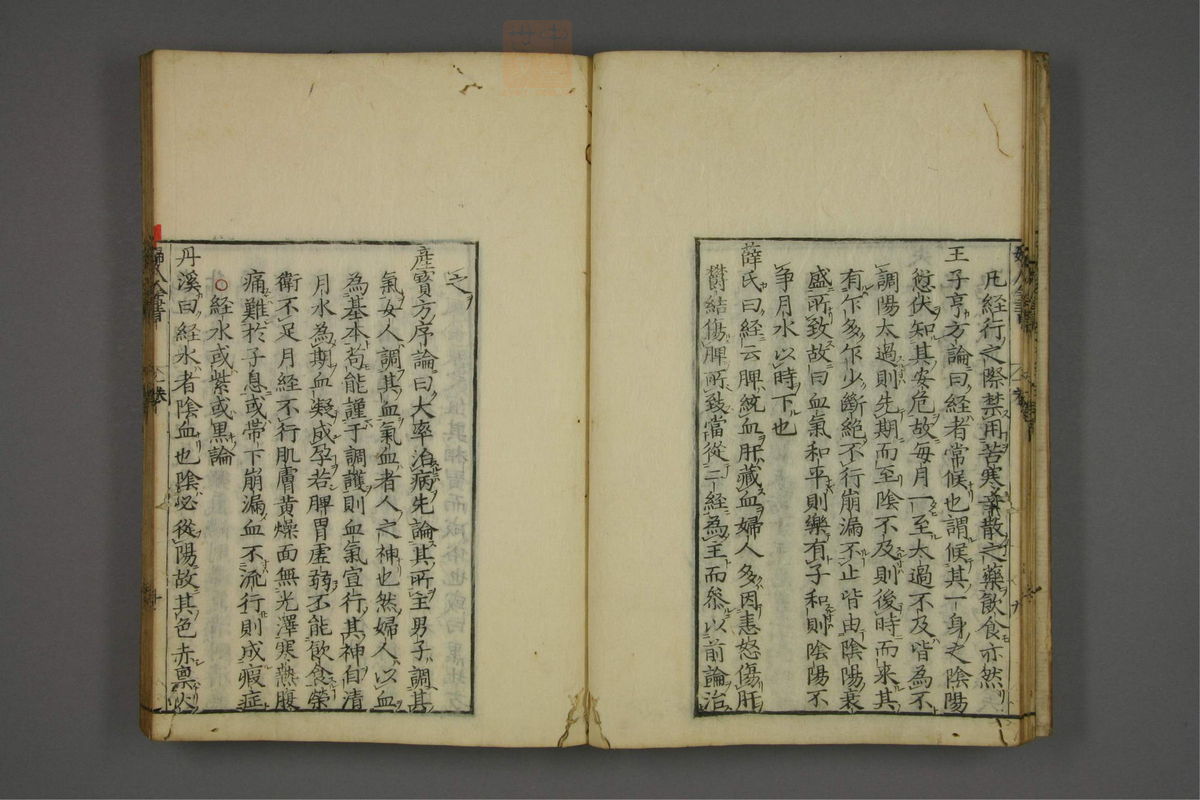 凡經行之際禁用苦寒辛散之藥飲食亦然
王子亨方論曰経者常候也謂候其一身之陰陽
愆伏知其安危故每月一至太過不及皆為不
調陽太過則先期而至陰不及則後時而來其
有乍多乍少斷絕不行崩漏不止皆由陰陽衰
盛所致故曰血氣和平則樂有子和則陰陽不
争月水以時下也
薛氏曰経云脾統血肝藏血婦人多因恚怒傷肝
欝結傷脾所致當從二經為主而叅以前論治
之
産寳方序論曰大率治病先論其所主男子調其
氣女人調其血氣血者人之神也然婦人以血
為基本苟能謹于調護則血氣宣行其神自清
月水為期血凝成孕若脾胃虛弱不能飲食榮
衛不足月經不行肌膚黃燥面無光澤寒熱腹
痛難於子息或帶下崩漏血不流行則成瘕症
○経水或紫或黒論
丹溪曰経水者陰血也陰必從陽故其色赤禀火